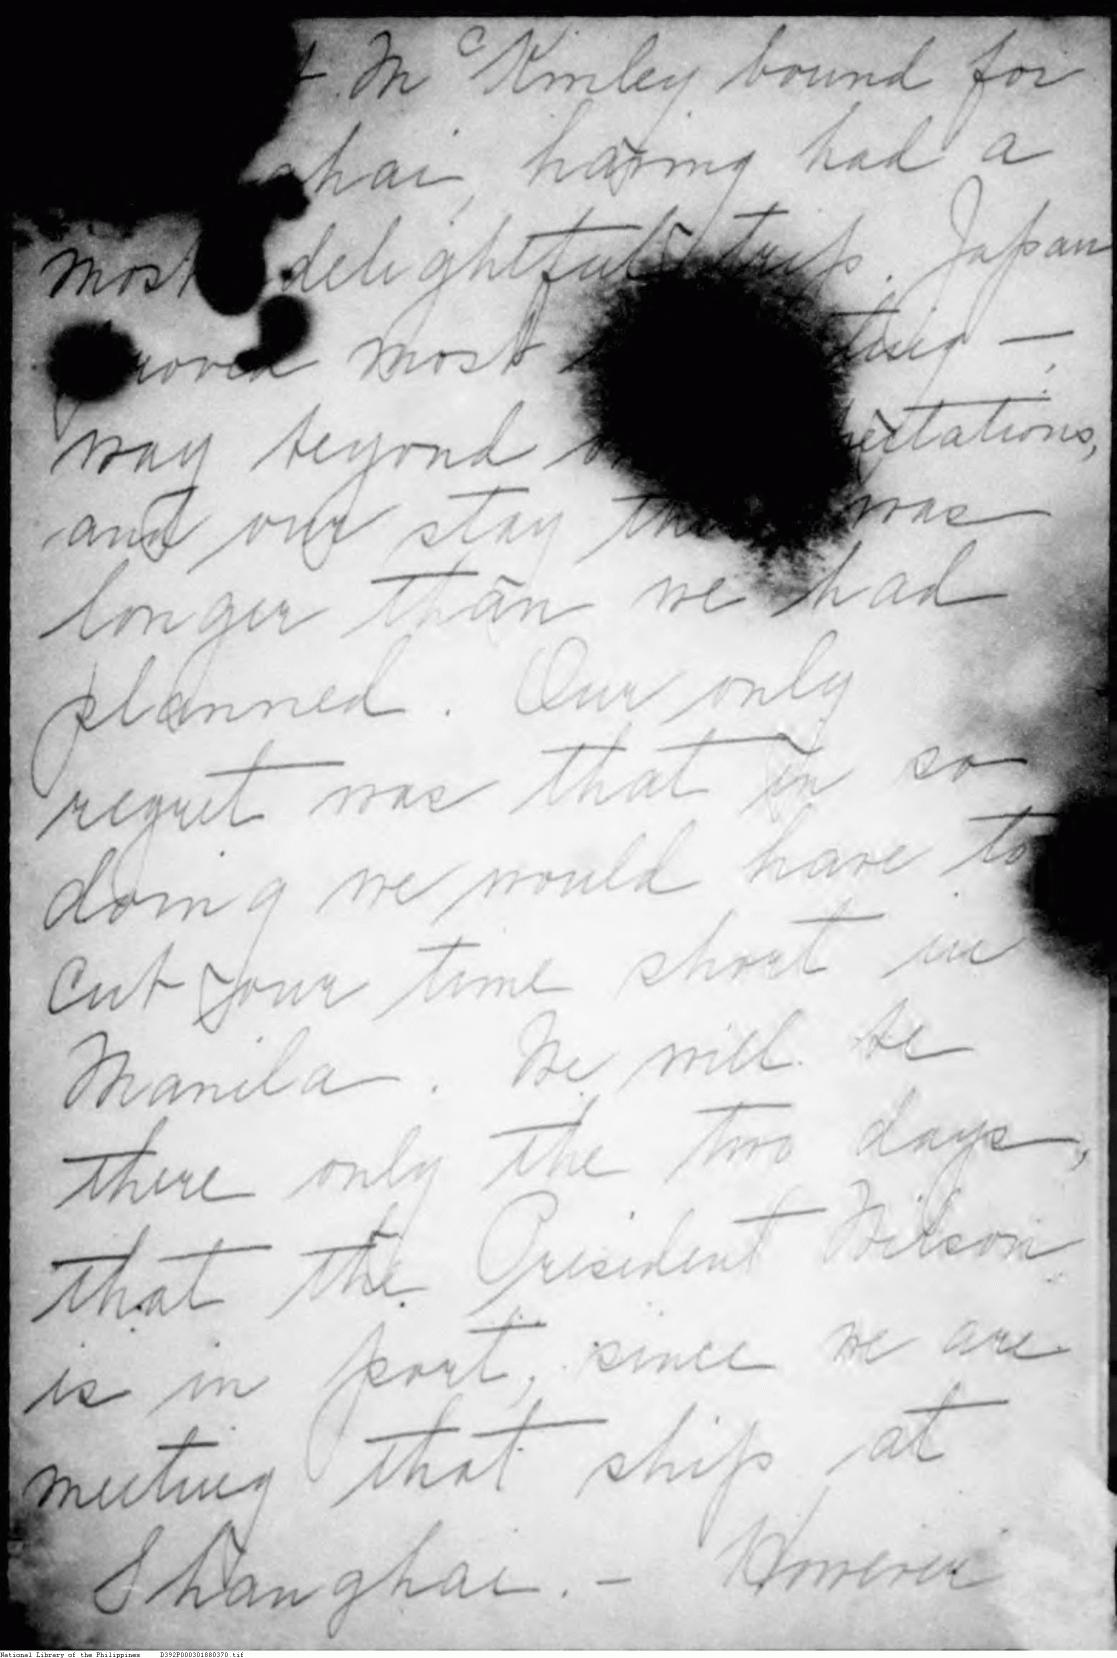 t. McKinley bound for
ghai, having had a
most delightful trip. Japan
proved most ting —,
way beyond pectations,
and our stay was
longer than we had
planned. Our only
regret was that in so
doing we would have to
cut our time short in
Manila. We will be
there only the two days,
that the President Wilson
is in port, since we are
meeting that ship at
Shanghai. — However
National Library of the Philippines D392P000301880370.tif